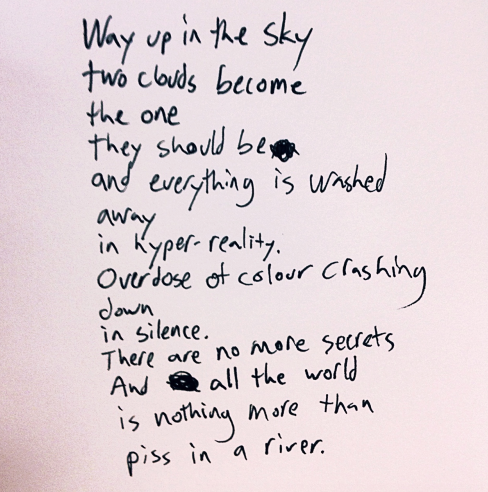 Way up in the sky
two clouds become
the one
they should be
and everything is washed
away
in hyper-reality.
Overdose of colour crashing
down
in silence.
There are no more secrets
And all the world
is nothing more than
piss in a river.